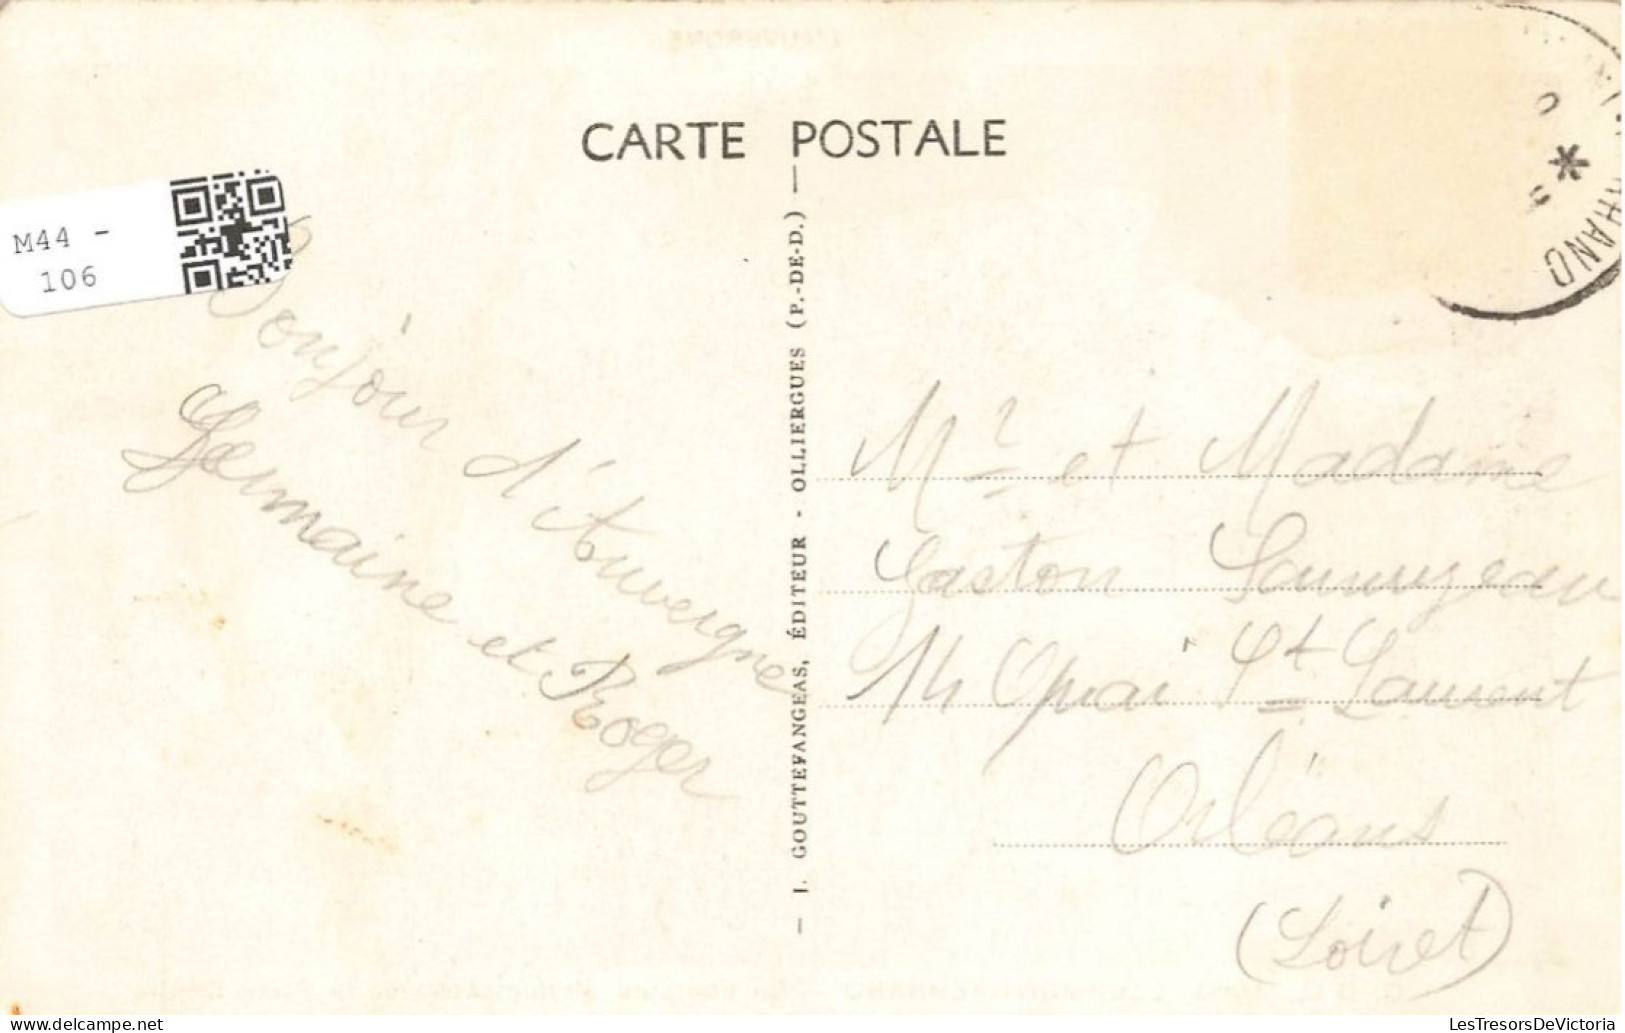 CARTE POSTALE
M44 -
106
Bonjour d'Auvergne
Germaine et Roger
— J. GOUTTEFANGEAS, ÉDITEUR - OLLIERGUES (P.-DE-D.) —
Mr et Madame
Gaston
14 Quai St Laurent
Orléans
(Loiret)
LesTresorsDeVictoria